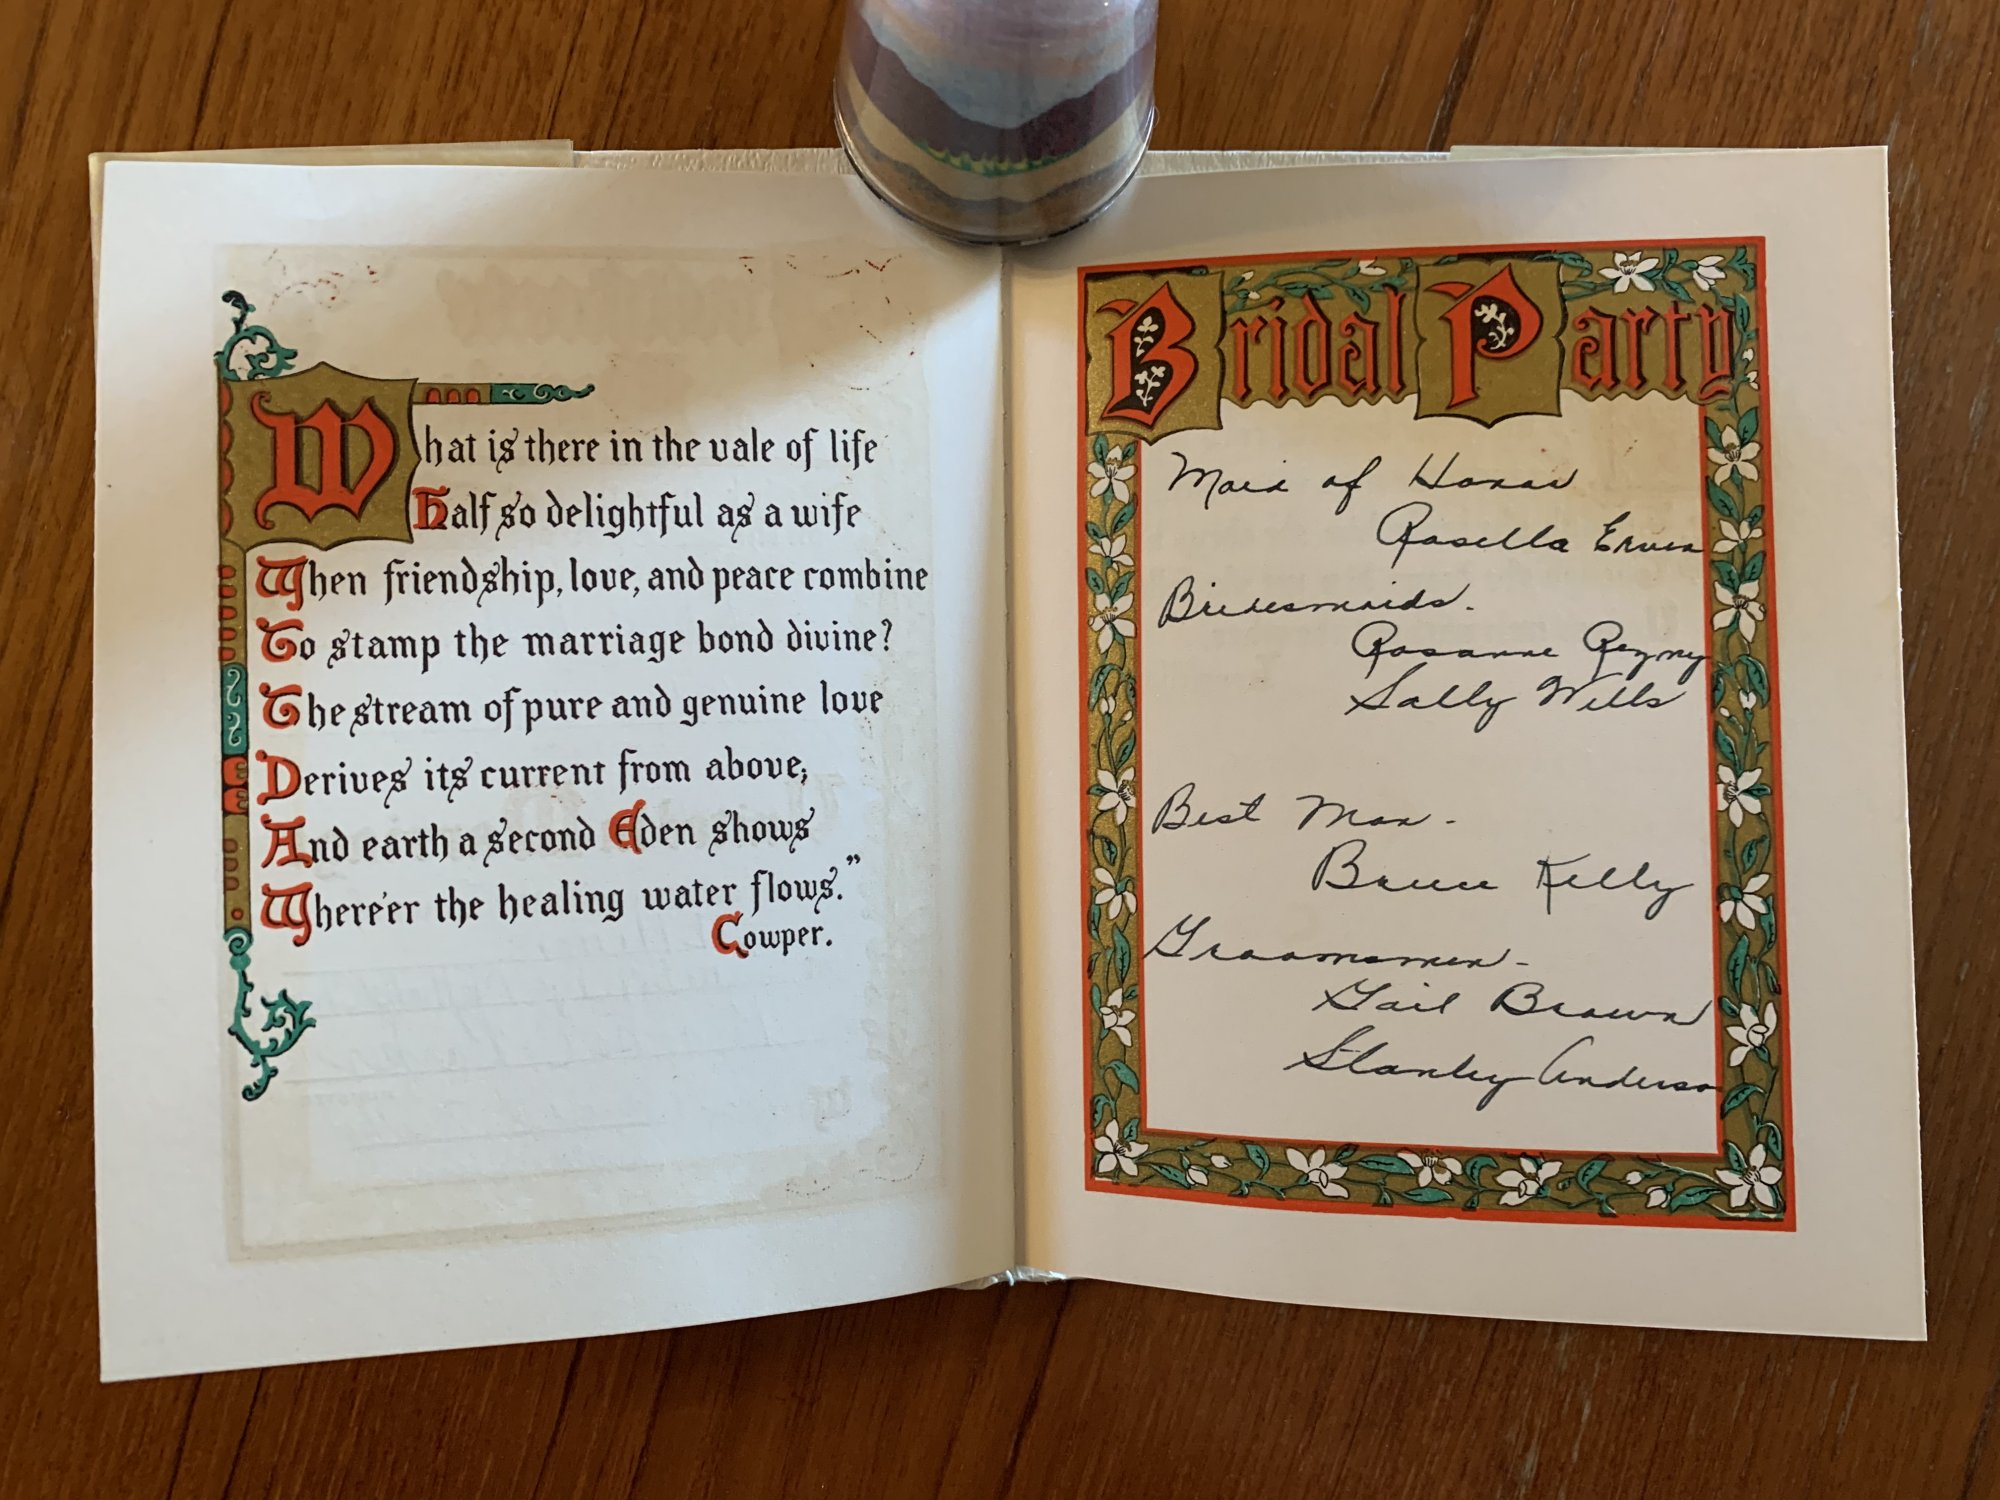 What is there in the vale of life
Half so delightful as a wife
When friendship, love, and peace combine
To stamp the marriage bond divine?
The stream of pure and genuine love
Derives its current from above;
And earth a second Eden shows
Where'er the healing water flows."
Cowper.
Bridal Party
Maid of Honor
Rosella Erwin
Bridesmaids.
Rosanne
Sally Wells
Best Man -
Bruce Kelly
Groomsmen -
Gail Brown
Stanley Anderson